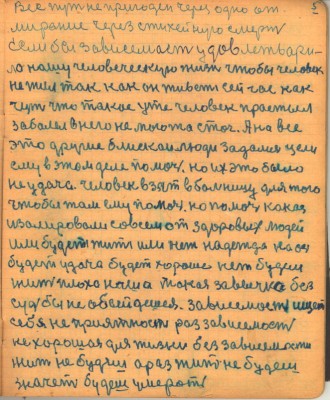 Все тут не пригоден через одно от 5
мирание через стихейную смерт
Если бы зависемост удовлетвори-
ло нашу человеческую жит чтобы человек
не жил так как он живет и сей час как
чуть что такое уже человек простыл
заболел в него не
это другие близкаи люди задалис цели
ему в этом деле помоч, но их это было
не удача. человек взят в больницу для того
чтобы там ему помоч, но помоч какая
изалировали совсем от здоровых людей
или будет жити или нет надежда на
будет удача будет хороше нет будеш
жит плохо наша такая без
судьбы не обойдешся. зависемост ищет
себя не приятност раз зависемост
не хорошая для жизни без зависемости
жит не будиш а раз жит не будеш
значет будеш умерат